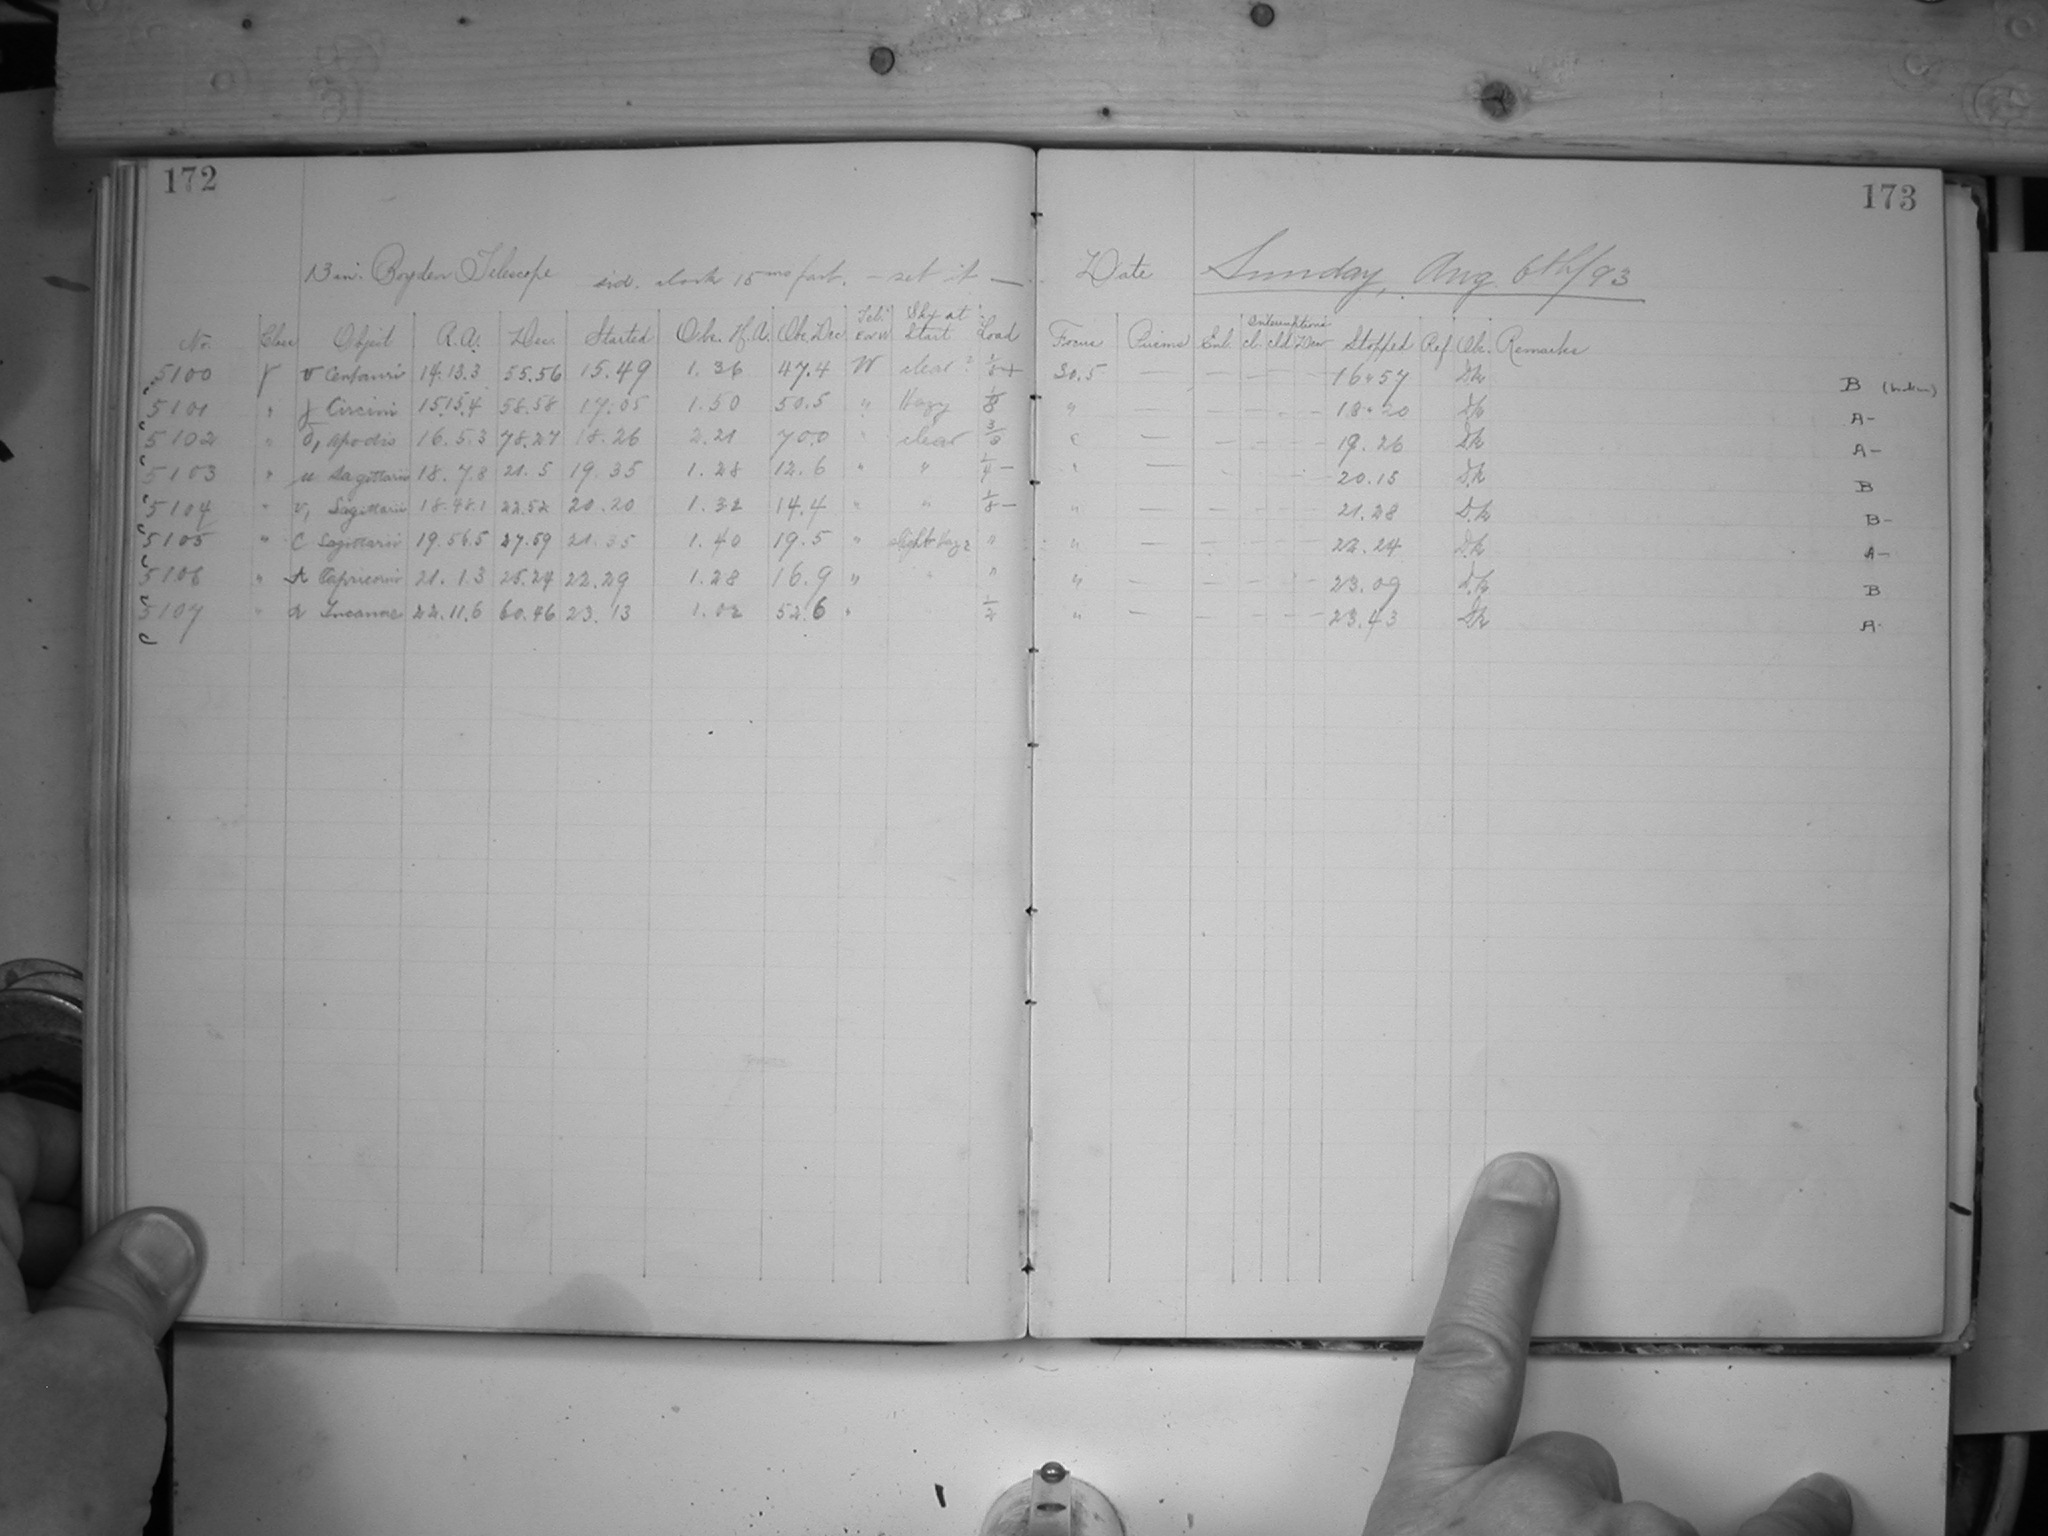 172
173
13 in. Boyden Telescope sid. clock 15 ms fast. - set it -
Date Sunday, Aug. 6th/93
No. Class Object R.A. Dec. Started Obs. H.A. Obs. Dec Tel. E or W Sky at Start Load Focus Prisms Enl. Interruptions cl. cld Dew Stopped Ref. Ob. Remarks
5100 γ v Centauri 14.13.3 55.56 15.49 1.36 47.4 W clear? 30.5 — — — — — 16.57 Dk B
5101 " Circini 15.15.4 58.58 17.05 1.50 50.5 " Hazy 1/8 " — — — — — 18.20 Dk A-
5102 " δ, Apodis 16.5.3 78.27 18.26 2.21 70.0 " clear 3/8 " — — — — — 19.26 Dk A-
5103 " μ Sagittarii 18.7.8 21.5 19.35 1.28 12.6 " " 1/4 - " — — — — — 20.15 Dk B
5104 " ν, Sagittarii 18.48.1 22.52 20.20 1.32 14.4 " " 1/8 - " — — — — — 21.28 Dk B-
5105 " c Sagittarii 19.56.5 27.59 21.35 1.40 19.5 " slight haze " " — — — — — 22.24 Dk A-
5106 " A Capricorni 21.1.3 25.24 22.29 1.28 16.9 " " " " — — — — — 23.09 Dk B
5107 " α Tucanae 22.11.6 60.46 23.13 1.02 52.6 " 1/2 " — — — — — 23.43 Dk A-